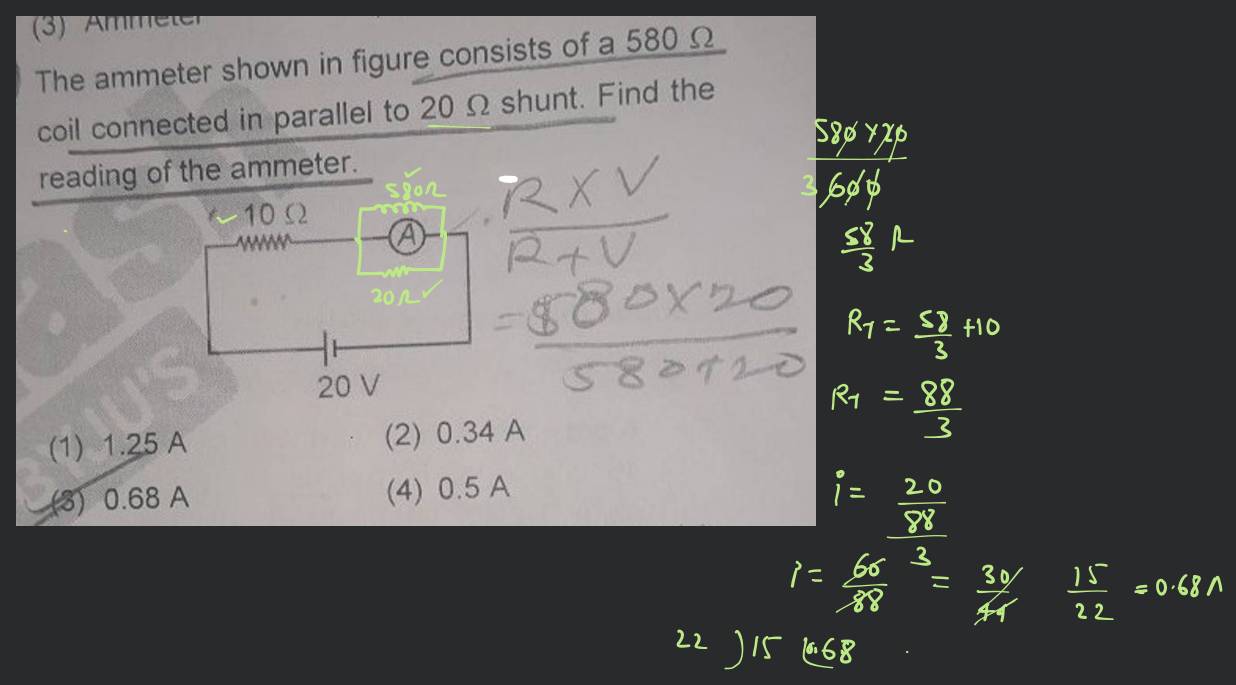 (3) Ammeter
The ammeter shown in figure consists of a 580 Ω
coil connected in parallel to 20 Ω shunt. Find the
reading of the ammeter.
580Ω
10 Ω
A
20Ω
20 V
R X V
R + V
= 580 X 20
580 + 20
(1) 1.25 A
(2) 0.34 A
(3) 0.68 A
(4) 0.5 A
BYJU'S
580 × 20
3 600
58
3
R_T = 58/3 + 10
R_T = 88/3
i = 20
88
3
i = 60/88 = 30/44 15/22 = 0.68 A
22 ) 15 ( 0.68